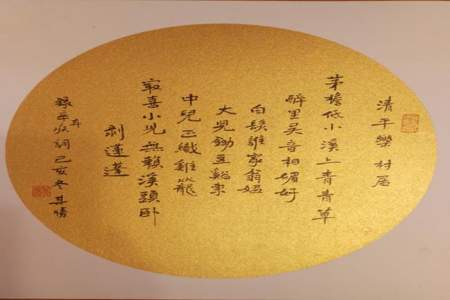 清平樂 村居
茅檐低小溪上青青草
醉里吴音相媚好
白髮誰家翁媪
大兒鋤豆谿東
中兒正織雞籠
最喜小兒無賴溪頭卧
剥蓮蓬
録辛弃疾詞己亥冬其